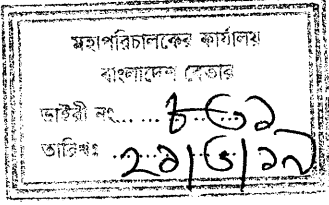 মহাপরিচালকের কার্যালয়
বাংলাদেশ বেতার
ডাইরী নং...... ৮৩১
তারিখঃ ..২১/৩/১৯